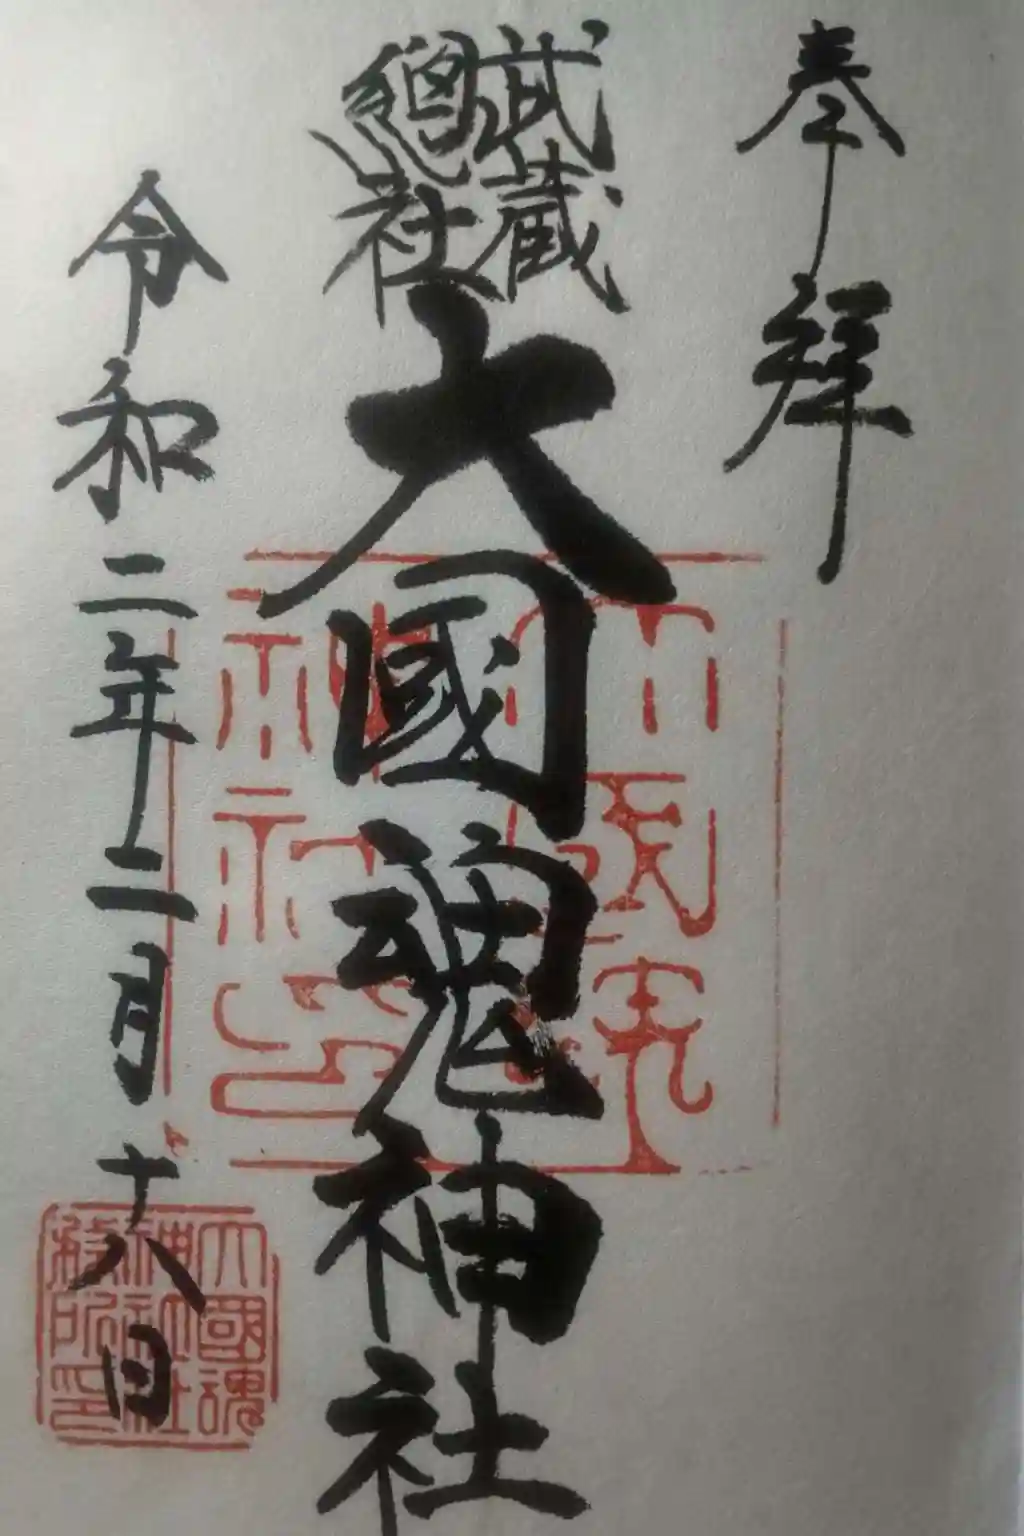 奉拜
武蔵
總社
大國魂神社
令和二年二月十八日
大國魂
神社印
大國魂
神社社
務所印